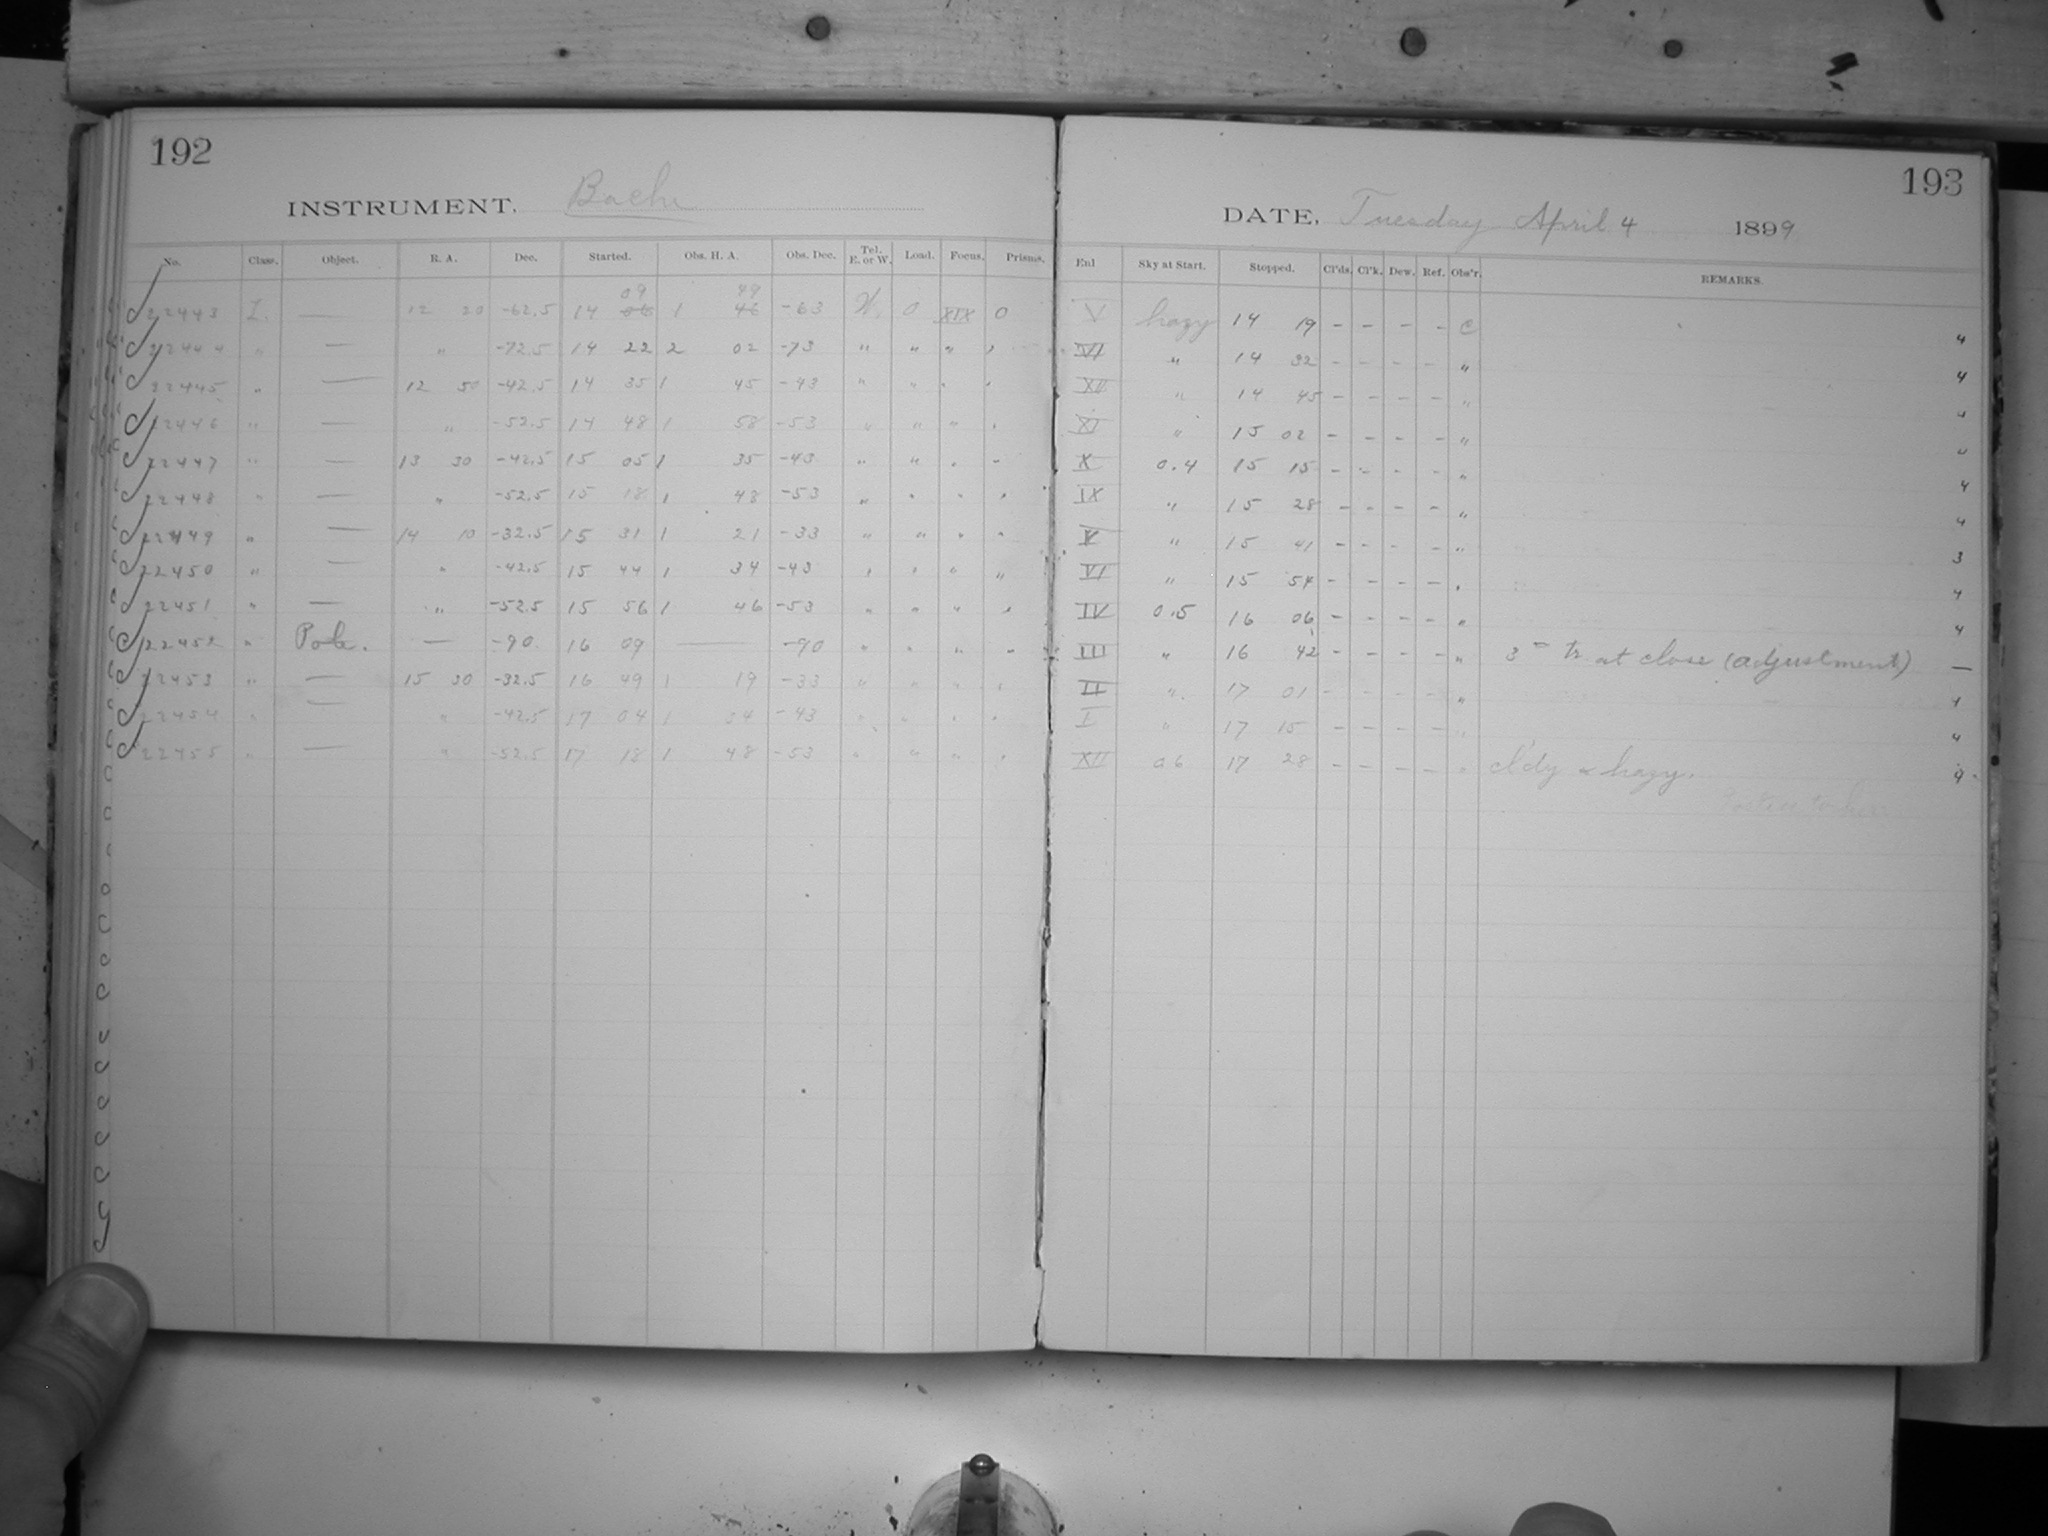 192
INSTRUMENT. Bache
No. Class. Object. R. A. Dec. Started. Obs. H. A. Obs. Dec. Tel. E. or W. Load. Focus. Prisms.
09 49
22443 I. — 12 20 -62.5 14 06 1 46 -63 W. 0 XIX 0
22444 " — " -72.5 14 22 2 02 -73 " " " "
22445 " — 12 50 -42.5 14 35 1 45 -43 " " " "
22446 " — " -52.5 14 48 1 58 -53 " " " "
22447 " — 13 30 -42.5 15 05 1 35 -43 " " " "
22448 " — " -52.5 15 18 1 48 -53 " " " "
22449 " — 14 10 -32.5 15 31 1 21 -33 " " " "
22450 " — " -42.5 15 44 1 34 -43 " " " "
22451 " — " -52.5 15 56 1 46 -53 " " " "
22452 " Pole. — -90 16 09 — -90 " " " "
22453 " — 15 30 -32.5 16 49 1 19 -33 " " " "
22454 " — " -42.5 17 04 1 34 -43 " " " "
22455 " — " -52.5 17 18 1 48 -53 " " " "
193
DATE, Tuesday April 4 1899
Enl Sky at Start. Stopped. Cl'ds. Cl'k. Dew. Ref. Obs'r. REMARKS.
V hazy 14 19 - - - - C 4
VI " 14 32 - - - - " 4
XII " 14 45 - - - - " 4
XI " 15 02 - - - - " 4
X 0.4 15 15 - - - - " 4
IX " 15 28 - - - - " 4
V " 15 41 - - - - " 3
VI " 15 54 - - - - " 4
IV 0.5 16 06 - - - - " 4
III " 16 42 - - - - " 3 m tr at close (adjustment) —
II " 17 01 - - - - " 4
I " 17 15 - - - - " 4
XII 0.6 17 28 - - - - " cl'dy & hazy. 4